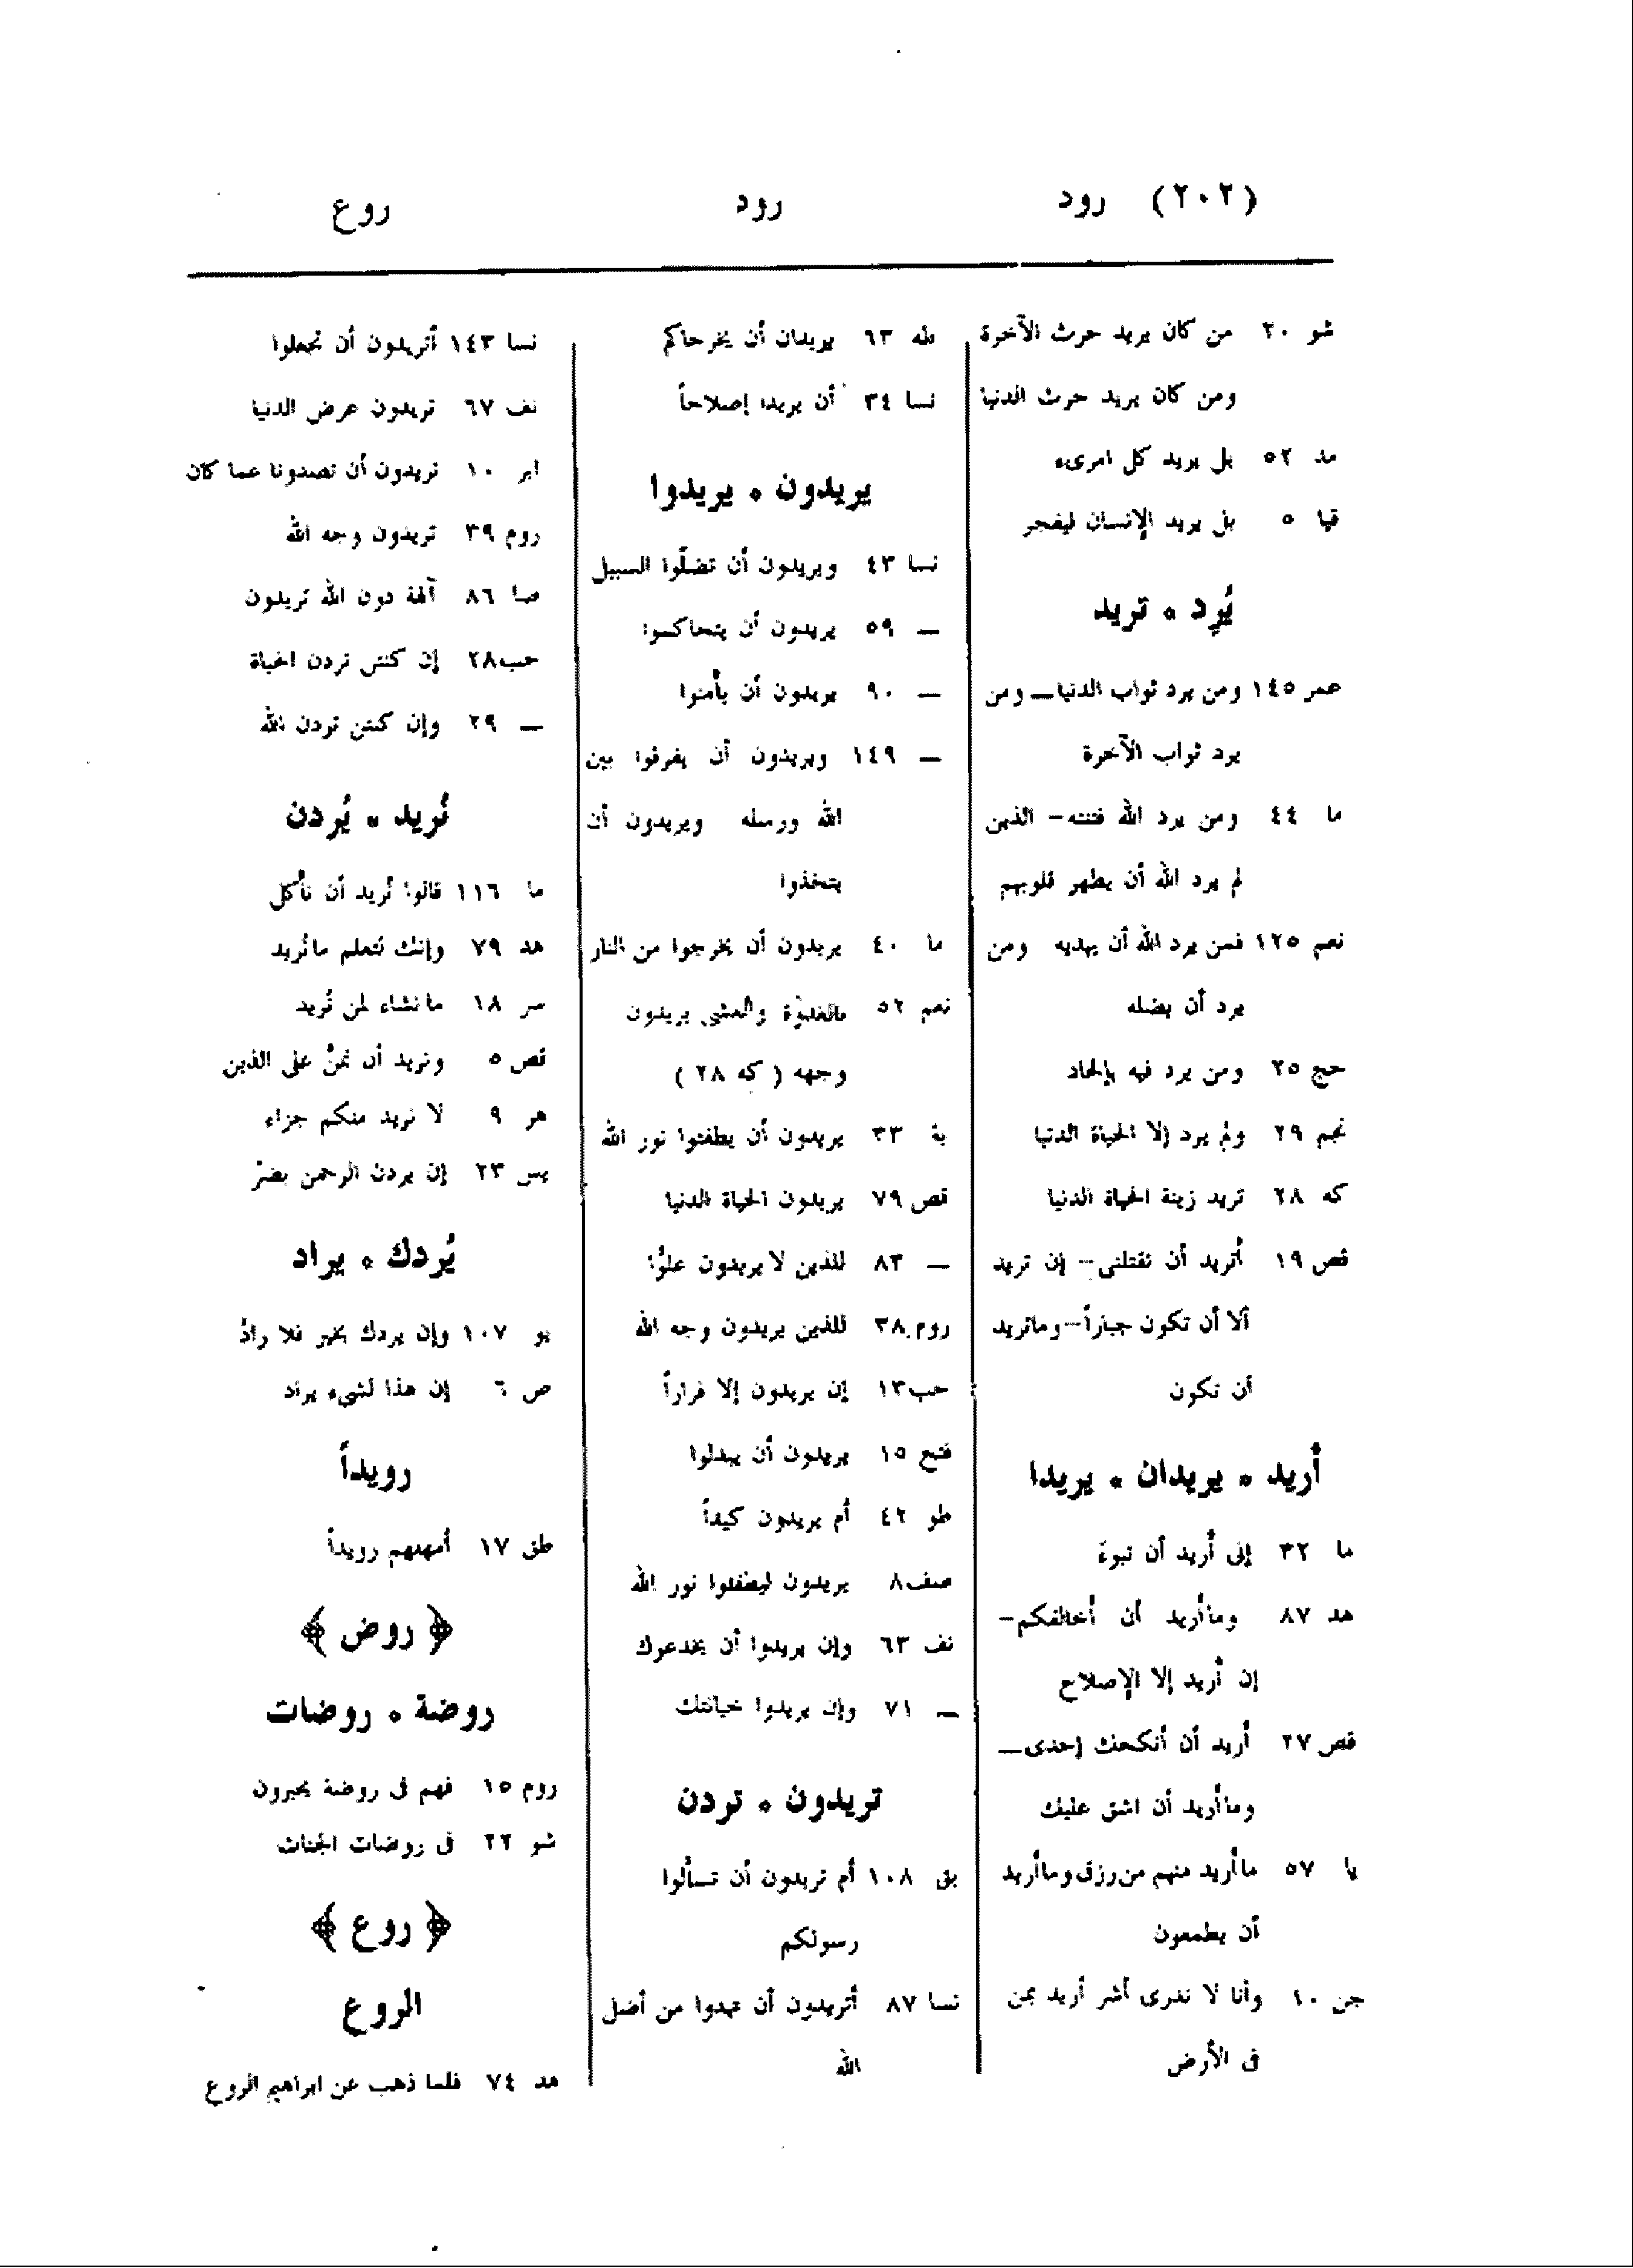 (٢٠٢) رود
رود
روع
شو ٢٠ من كان يريد حرث الآخرة
ومن كان يريد حرث الدنيا
مد ٥٢ بل يريد كل امرىء
قيا ٥ بل يريد الإنسان ليفجر
يُرِد ٠ تريد
عمر ١٤٥ ومن يرد ثواب الدنيا — ومن
يرد ثواب الآخرة
ما ٤٤ ومن يرد الله فتنته - الذين
لم يرد الله أن يطهر قلوبهم
نعم ١٢٥ فمن يرد الله أن يهديه ومن
يرد أن يضله
حج ٢٥ ومن يرد فيه بإلحاد
نجم ٢٩ ولم يرد إلا الحياة الدنيا
كه ٢٨ تريد زينة الحياة الدنيا
قص ١٩ أتريد أن تقتلنى - إن تريد
ألا أن تكون جباراً - وماتريد
أن تكون
أُريد ٠ يريدان ٠ يريدا
ما ٣٢ إنى أُريد أن تبوءَ
هد ٨٧ وماأُريد أن أخالفكم -
إن أُريد إلا الإصلاح
قص ٢٧ أُريد أن أنكحك إحدى —
وماأُريد أن اشق عليك
يا ٥٧ ماأُريد منهم من رزق وماأُريد
أن يطمعون
جن ١٠ وأنا لا ندرى أشر أريد بمن
فى الأرض
طه ٦٣ يريدان أن يخرجاكم
نسا ٣٤ أن يريدا إصلاحاً
يريدون ٠ يريدوا
نسا ٤٣ ويريدون أن تضلّوا السبيل
— ٥٩ يريدون أن يتحاكموا
— ٩٠ يريدون أن يأمنوا
— ١٤٩ ويريدون أن يفرقوا بين
الله ورسله ويريدون أن
يتخذوا
ما ٤٠ يريدون أن يخرجوا من النار
نعم ٥٢ بالغدوٰة والعشى يريدون
وجهه ( كه ٢٨ )
بة ٣٣ يريدون أن يطفئوا نور الله
قص ٧٩ يريدون الحياة الدنيا
— ٨٣ للذين لا يريدون علوًّا
روم ٣٨ للذين يريدون وجه الله
حب ١٣ إن يريدون إلا فراراً
فتح ١٥ يريدون أن يبدلوا
طو ٤٢ أم يريدون كيداً
صف ٨ يريدون ليطفئوا نور الله
نف ٦٣ وإن يريدوا أن يخدعوك
— ٧١ وإن يريدوا خيانتك
تريدون ٠ تردن
بق ١٠٨ أم تريدون أن تسألوا
رسولكم
نسا ٨٧ أتريدون أن تهدوا من أضل
الله
نسا ١٤٣ أتريدون أن تجعلوا
نف ٦٧ تريدون عرض الدنيا
ابر ١٠ تريدون أن تصدونا عما كان
روم ٣٩ تريدون وجه الله
صا ٨٦ آلهة دون الله تريدون
حب ٢٨ إن كنتن تردن الحياة
— ٢٩ وإن كنتن تردن الله
نُريد ٠ يُردن
ما ١١٦ قالوا نُريد أن نأكل
هد ٧٩ وإنك لتعلم مانُريد
سر ١٨ مانشاء لمن نُريد
قص ٥ ونريد أن نمنَّ على الذين
هر ٩ لا نريد منكم جزاء
يس ٢٣ إن يردن الرحمن بضرّ
يُردك ٠ يراد
يو ١٠٧ وإن يردك بخير فلا رادّ
ص ٦ إن هذا لشىء يراد
رويداً
طق ١٧ أمهلهم رويداً
﴿ روض ﴾
روضة ٠ روضات
روم ١٥ فهم فى روضة يحبرون
شو ٢٢ فى روضات الجنات
﴿ روع ﴾
الروع
هد ٧٤ فلما ذهب عن ابراهيم الروع